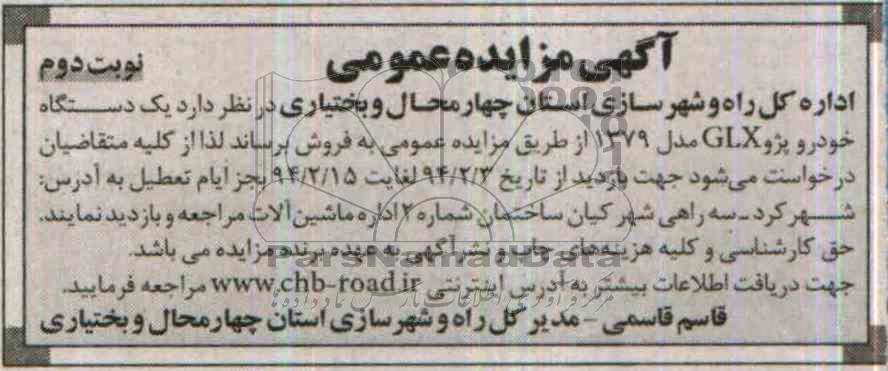 آگهی مزایده عمومی
نوبت دوم
اداره کل راه و شهرسازی استان چهارمحال و بختیاری در نظر دارد یک دستگاه
خودرو پژو GLX مدل ۱۳۷۹ از طریق مزایده عمومی به فروش برساند لذا از کلیه متقاضیان
درخواست می‌شود جهت بازدید از تاریخ ۹۴/۲/۳ لغایت ۹۴/۲/۱۵ بجز ایام تعطیل به آدرس:
شهرکرد ـ سه راهی شهر کیان ساختمان شماره ۲ اداره ماشین آلات مراجعه و بازدید نمایند.
حق کارشناسی و کلیه هزینه‌های جانبی و نشر آگهی به عهده برنده مزایده می باشد.
جهت دریافت اطلاعات بیشتر به آدرس اینترنتی www.chb-road.ir مراجعه فرمایید.
قاسم قاسمی - مدیر کل راه و شهرسازی استان چهارمحال و بختیاری
ParsNamadData